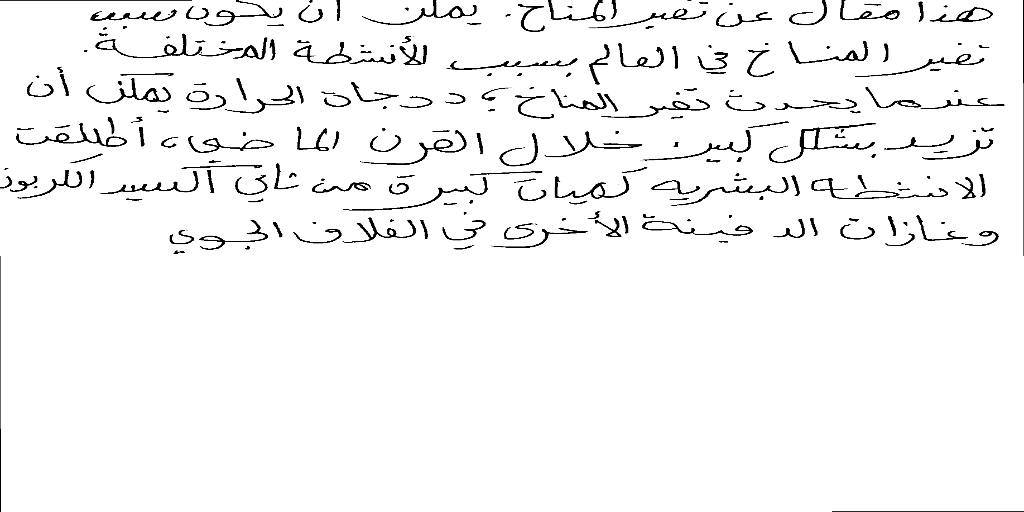 هذا مقال عن تغير المناخ. يمكن أن يكون سبب
تغير المناخ في العالم بسبب الأنشطة المختلفة.
عندما يحدث تغير المناخ؛ درجات الحرارة يمكن أن
تزيد بشكل كبير خلال القرن الماضي، أطلقت
الانشطه البشريه كميات كبيرة من ثاني أكسيد الكربون
وغازات الدفينة الأخرى في الغلاف الجوي